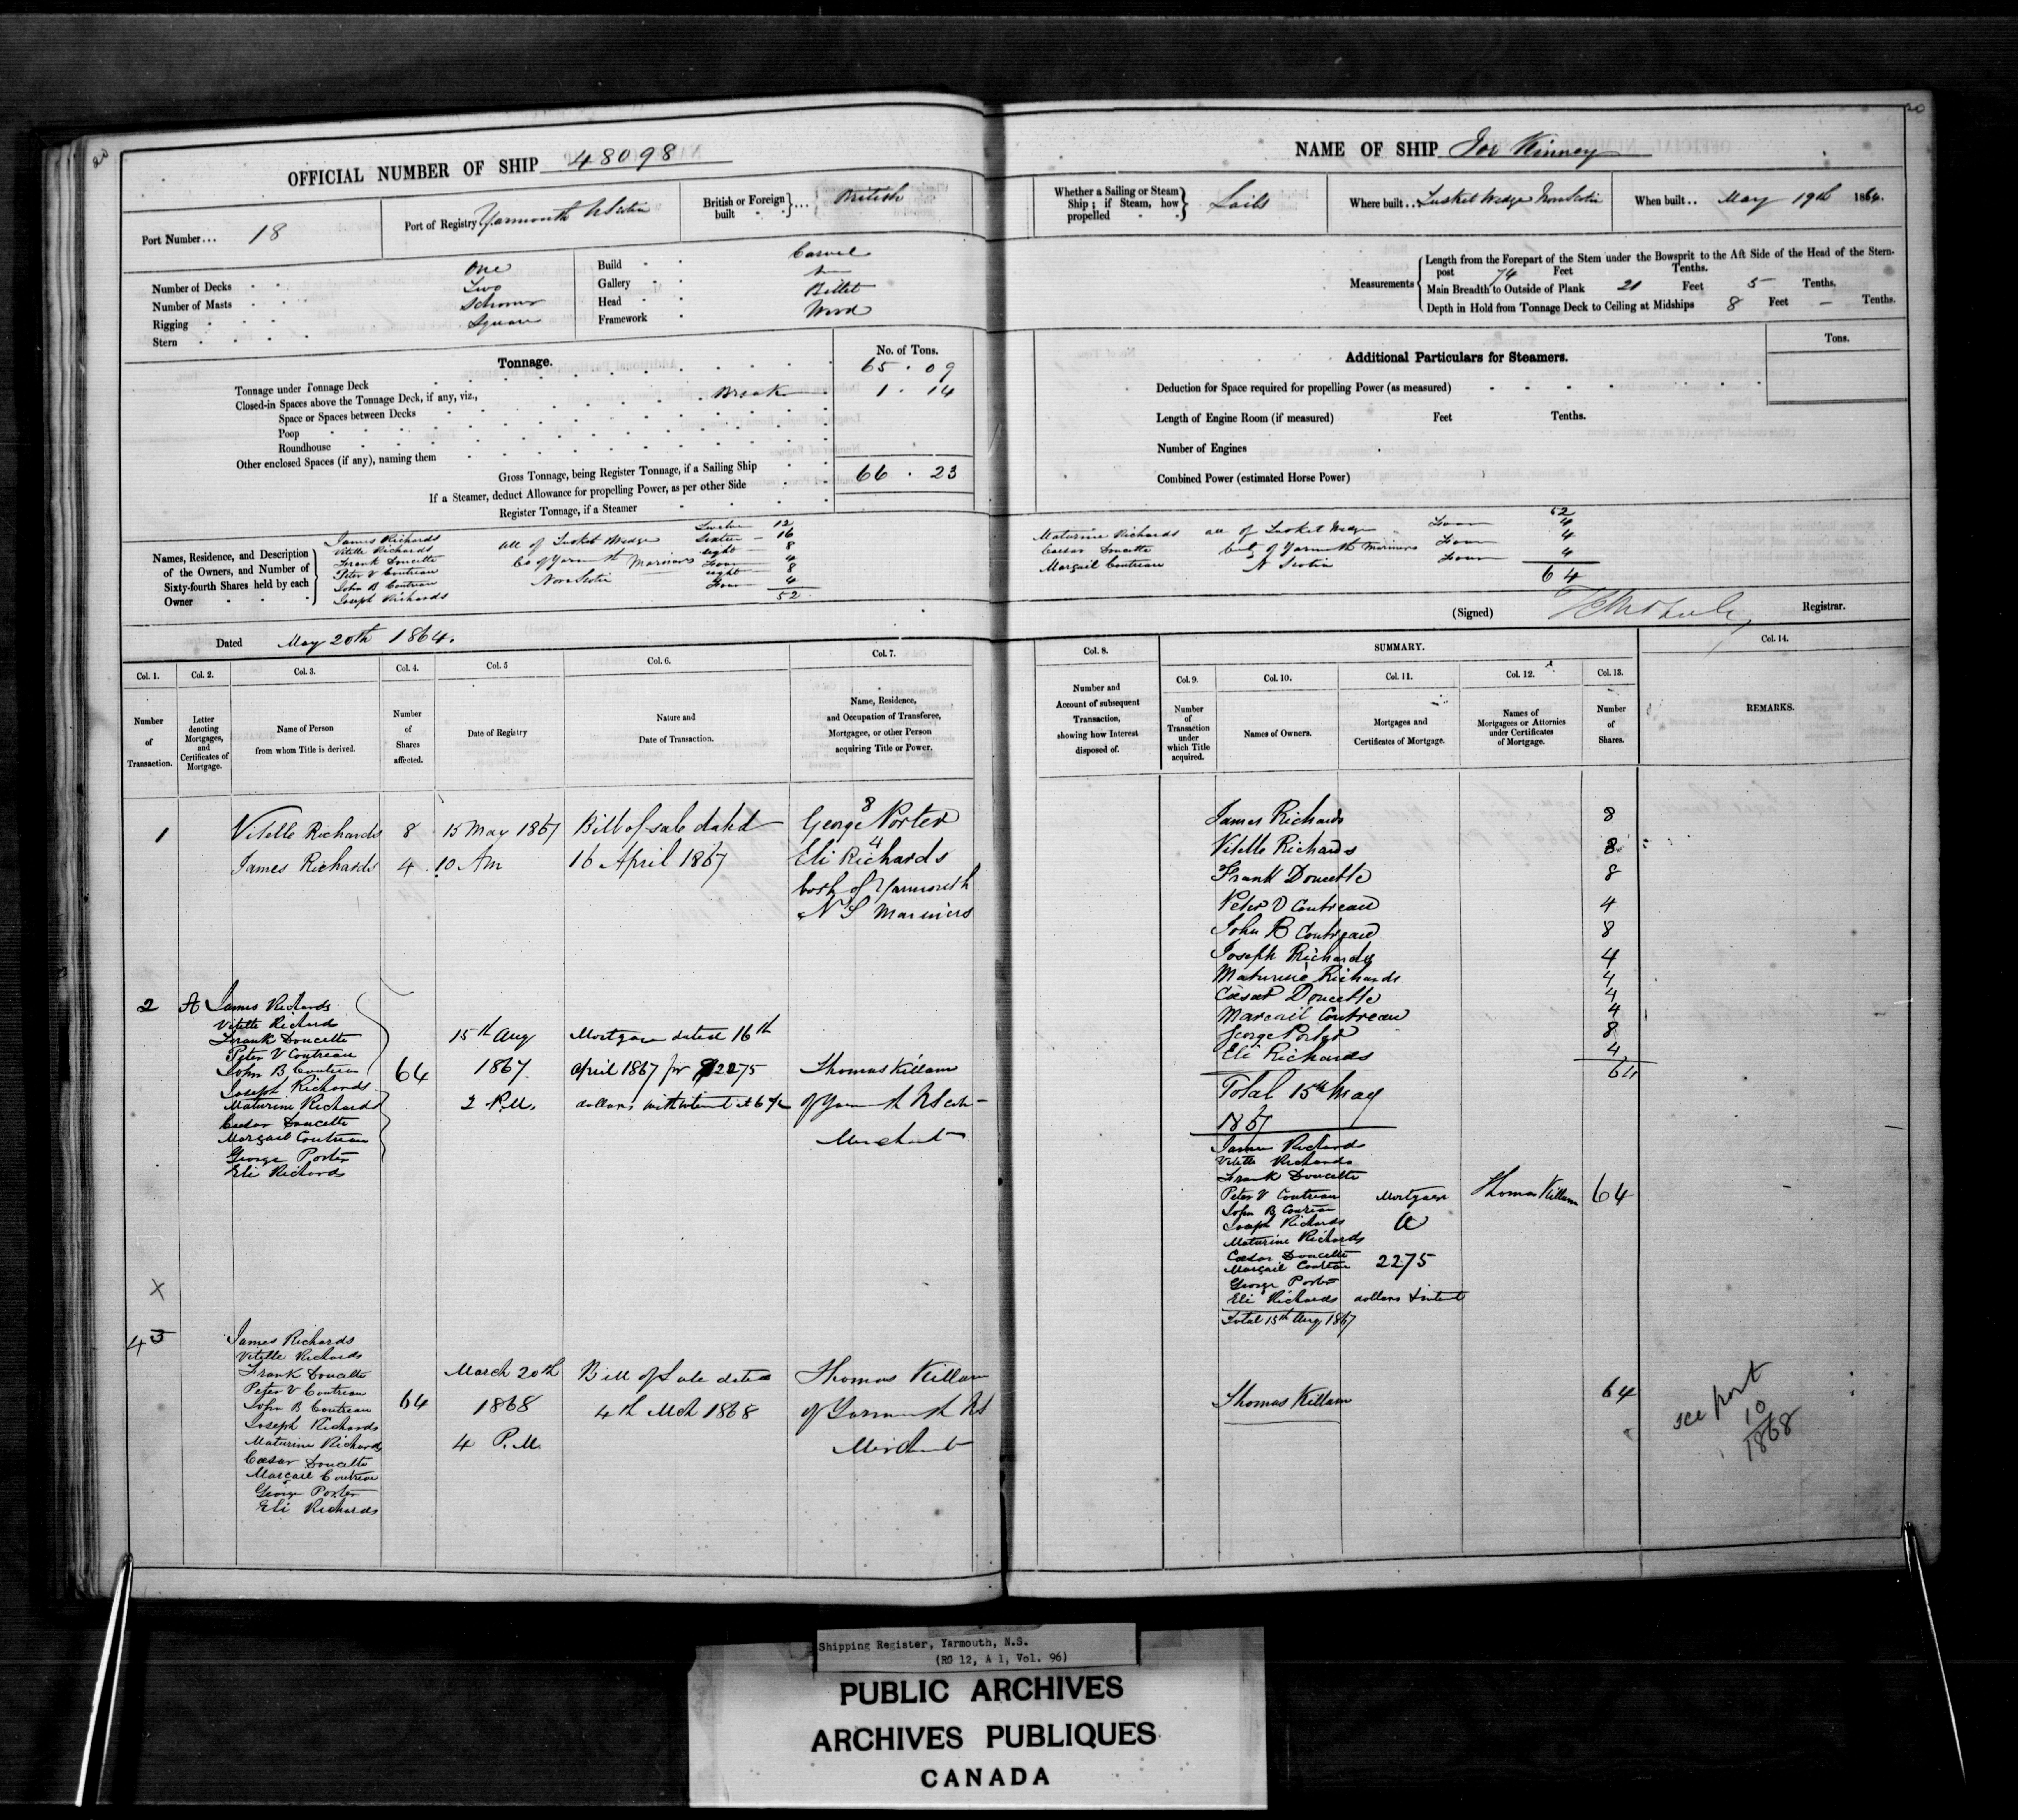 20
OFFICIAL NUMBER OF SHIP 48098
Port Number... 18
Port of Registry Yarmouth N Scotia
British or Foreign built } ... { British
Number of Decks One
Number of Masts Two
Rigging Schooner
Stern Square
Build Carvel
Gallery
Head Billet
Framework Wood
Tonnage.
No. of Tons.
Tonnage under Tonnage Deck 65 . 09
Closed-in Spaces above the Tonnage Deck, if any, viz., Break 1 . 14
Space or Spaces between Decks
Poop
Roundhouse
Other enclosed Spaces (if any), naming them
Gross Tonnage, being Register Tonnage, if a Sailing Ship 66 . 23
If a Steamer, deduct Allowance for propelling Power, as per other Side
Register Tonnage, if a Steamer
Names, Residence, and Description of the Owners, and Number of Sixty-fourth Shares held by each Owner
James Richards Twelve 12
Vitelle Richards Sixteen 16
Frank Doucette eight 8
Peter V Contreau Four 4
John B Contreau eight 8
Joseph Richards Four 4
all of Tusket Wedge
Co of Yarmouth Mariners
Nova Scotia
52
Dated May 20th 1864.
Col. 1. Number of Transaction.
Col. 2. Letter denoting Mortgages, and Certificates of Mortgage.
Col. 3. Name of Person from whom Title is derived.
Col. 4. Number of Shares affected.
Col. 5 Date of Registry
Col. 6. Nature and Date of Transaction.
Col. 7. Name, Residence, and Occupation of Transferee, Mortgagee, or other Person acquiring Title or Power.
1 Vitelle Richards 8 15 May 1867 Bill of sale dated George Porter 8
James Richards 4 10 Am 16 April 1867 Eli Richards 4
both of Yarmouth
N S Mariners
2 A James Richards
Vitelle Richard
Frank Doucette
Peter V Contreau
John B Contreau
Joseph Richards
Maturine Richards
Caesar Doucette
Margail Contreau
George Porter
Eli Richards
64
15th Aug
1867
2 P.M.
Mortgage dated 16th
April 1867 for $2275
dollars with interest at 6 %
Thomas Killam
of Yarmouth N Scotia
Merchant
X
4 3 James Richards
Vitelle Richards
Frank Doucette
Peter V Contreau
John B Contreau
Joseph Richards
Maturine Richards
Caesar Doucette
Margail Contreau
George Porter
Eli Richards
64
March 20th
1868
4 P.M.
Bill of Sale dated
4th Mch 1868
Thomas Killam
of Yarmouth NS
Merchant
20
NAME OF SHIP Joe Kinney
Whether a Sailing or Steam Ship; if Steam, how propelled } Sails
Where built .. Tusket Wedge Nova Scotia
When built .. May 19th 1864.
Measurements
Length from the Forepart of the Stem under the Bowsprit to the Aft Side of the Head of the Stern-
post 74 Feet Tenths.
Main Breadth to Outside of Plank 21 Feet 5 Tenths.
Depth in Hold from Tonnage Deck to Ceiling at Midships 8 Feet – Tenths.
Additional Particulars for Steamers.
Tons.
Deduction for Space required for propelling Power (as measured)
Length of Engine Room (if measured) Feet Tenths.
Number of Engines
Combined Power (estimated Horse Power)
52
Maturine Richards all of Tusket Wedge Four 4
Caesar Doucette Co of Yarmouth Mariners Four 4
Margail Contreau N Scotia Four 4
64
(Signed) Registrar.
Col. 8. Number and Account of subsequent Transaction, showing how Interest disposed of.
SUMMARY.
Col. 9. Number of Transaction under which Title acquired.
Col. 10. Names of Owners.
Col. 11. Mortgages and Certificates of Mortgage.
Col. 12. Names of Mortgagees or Attornies under Certificates of Mortgage.
Col. 13. Number of Shares.
Col. 14. REMARKS.
James Richards 8
Vitelle Richards 8
Frank Doucette 8
Peter V Contreau 4
John B Contreau 8
Joseph Richards 4
Maturine Richards 4
Caesar Doucette 4
Margail Contreau 4
George Porter 8
Eli Richards 4
64
Total 15th May
1867
James Richards
Vitelle Richards
Frank Doucette
Peter V Contreau
John B Contreau
Joseph Richards
Maturine Richards
Caesar Doucette
Margail Contreau
George Porter
Eli Richards
Total 15th Aug 1867
Mortgage
A
2275
dollars & interest
Thomas Killam 64
Thomas Killam 64
see port
10
1868
Shipping Register, Yarmouth, N.S.
(RG 12, A 1, Vol. 96)
PUBLIC ARCHIVES
ARCHIVES PUBLIQUES
CANADA